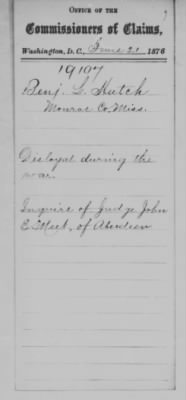 OFFICE OF THE
Commissioners of Claims,
Washington, D. C., June 21 1876
19107
Benj. L. Hatch
Monroe Co. Miss.
Disloyal during the
war.
Inquire of Judge John
E. Meek, of Aberdeen